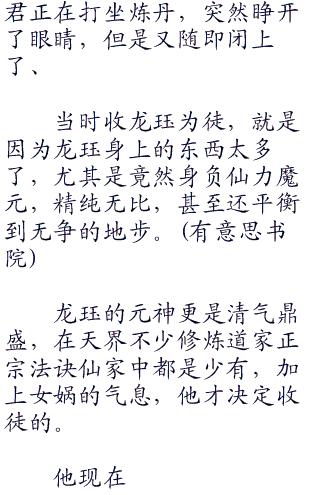 君正在打坐炼丹，突然睁开
了眼睛，但是又随即闭上
了、
当时收龙珏为徒，就是
因为龙珏身上的东西太多
了，尤其是竟然身负仙力魔
元，精纯无比，甚至还平衡
到无争的地步。(有意思书
院)
龙珏的元神更是清气鼎
盛，在天界不少修炼道家正
宗法诀仙家中都是少有，加
上女娲的气息，他才决定收
徒的。
他现在